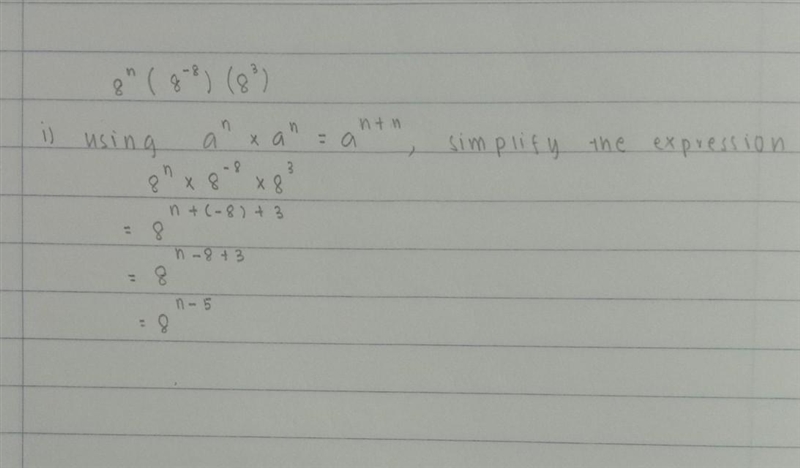 8ⁿ (8⁻⁸) (8³)
i) using aⁿ × aⁿ = aⁿ⁺ⁿ, simplify the expression
8ⁿ × 8⁻⁸ × 8³
= 8ⁿ⁺⁽⁻⁸⁾⁺³
= 8ⁿ⁻⁸⁺³
= 8ⁿ⁻⁵